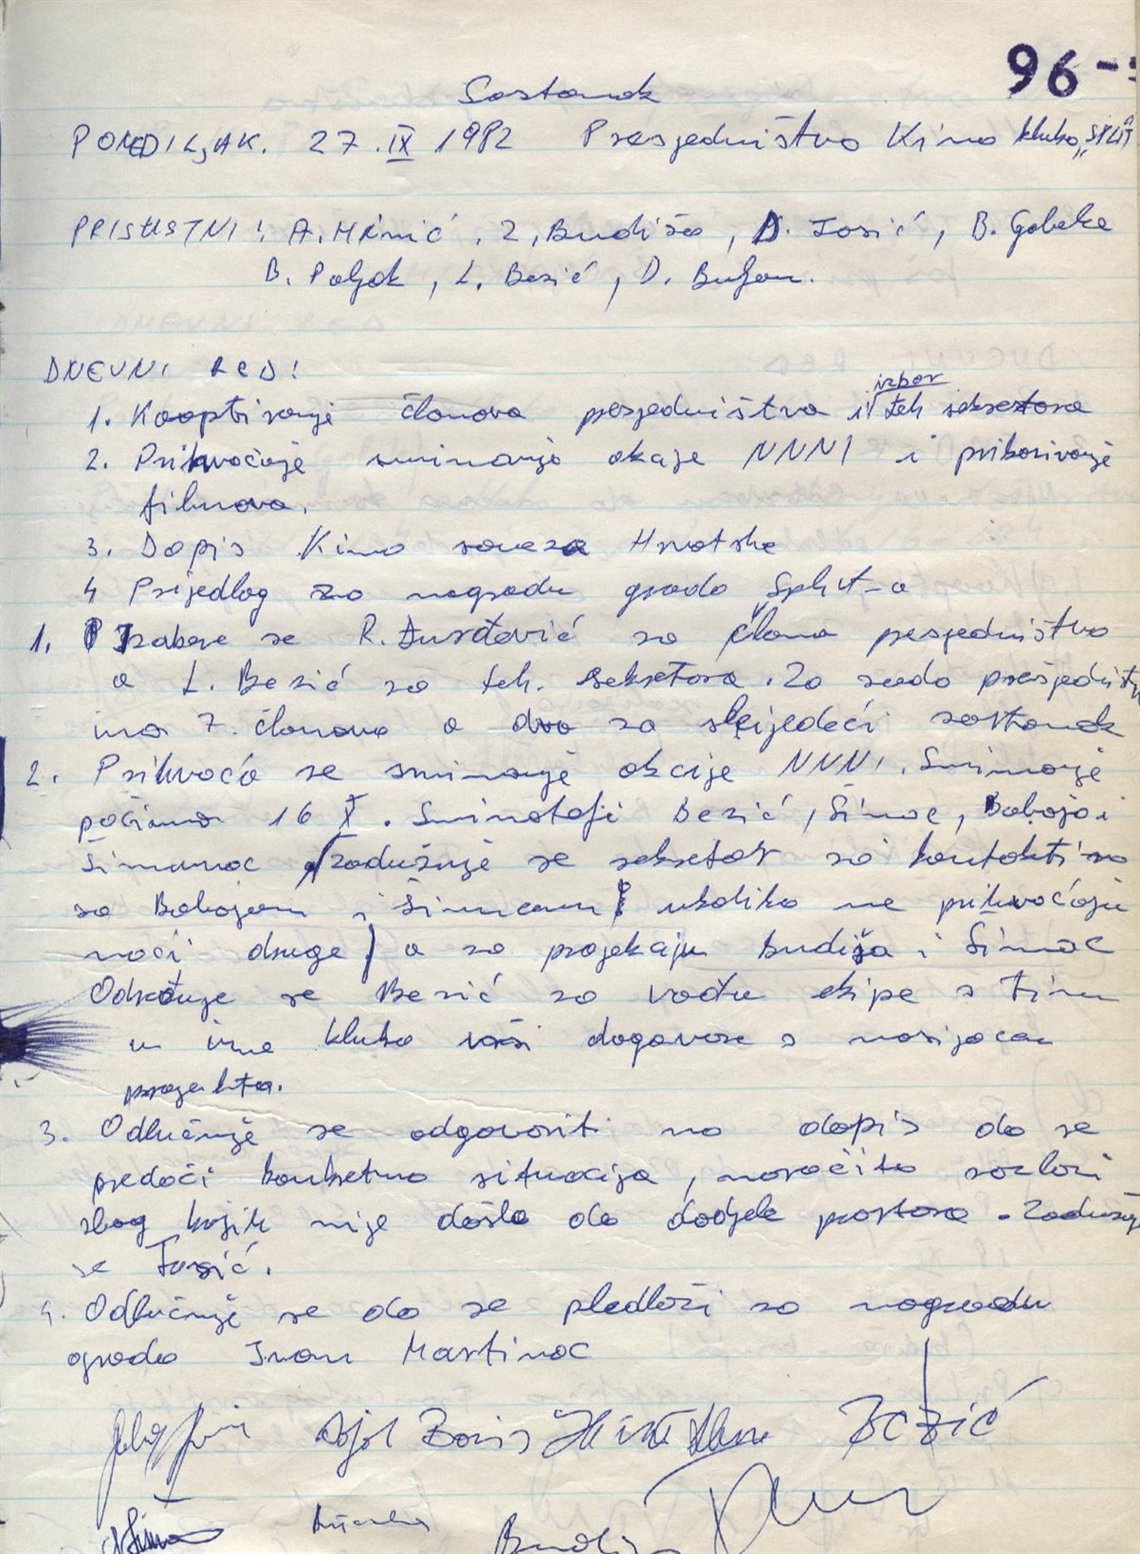 96-
Sastanak
PONEDILJAK. 27. IX 1982 Presjedništvo Kino kluba „SPLIT"
PRISUSTNI: A. , Z. Budiša, D. Josić, B. Gabela
B. Poljak, L. Bezić, D. Buljan.
DNEVNI RED:
1. Kooptiranje članova presjedništva i izbor teh sekretara
2. Prihvaćaje snimanje akcije NNNI i pribavivanje
filmova.
3. Dopis Kino saveza Hrvatske
4 Prijedlog za nagradu grada Split-a
1. Izabere se R. Đurđević za člana presjedništva
a L. Bezić za teh. sekretara. Za sada
ima 7. članova a dva za slijedeći sastanak
2. Prihvaća se snimanje akcije NNNI. Snimanje
počima 16 X. Snimatelji Bezić, Šimac, Babaja i
Šimunac (zadužuje se sekretar za kontaktira
sa Babajom i ukoliko ne prihvaćaju
naći druge) a za projekciju Budiša i Šimac
Određuje se Bezić za vođu ekipe s tim
u ime kluba vrši dogovore s nosijocem
projekta.
3. Odlučuje se odgovoriti na dopis da se
predoči konkretna situacija, naročito razlozi
zbog kojih nije došlo do dodjele prostora. Zadužuje
se
4. Odlučuje se da se predloži za nagradu
grada Ivan Martinac
Boris BEZIĆ